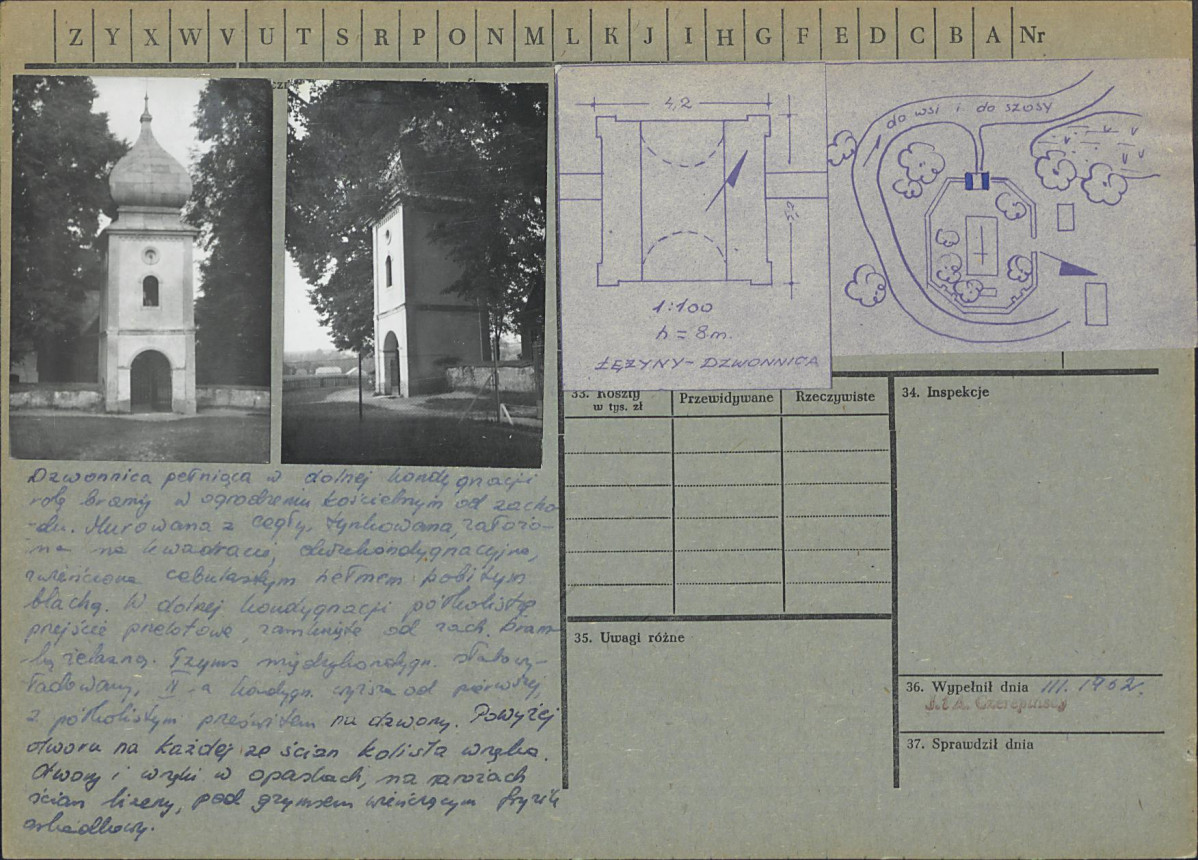 Z Y X W V U T S R P O N M L K J I H G F E D C B A Nr
4,2
1:100
h = 8 m.
ŁĘŻYNY - DZWONNICA
do wsi i do szosy
Dzwonnica pełniąca w dolnej kondygnacji
rolę bramy w ogrodzeniu kościelnym od zacho-
du. Murowana z cegły, tynkowana, założo-
na na kwadracie, dwukondygnacyjna,
zwieńczona cebulastym hełmem pobitym
blachą. W dolnej kondygnacji półkoliste
przejście przelotowe, zamknięte od zach. bram-
ką żelazną. Gzyms międzykondygn.
II-a kondygn. wyższa od pierwszej,
z półkolistym prześwitem na dzwony. Powyżej
otworu na każdej ze ścian kolista wnęka.
Otwory i wnęki w opaskach, na narożach
ścian lizeny, pod gzymsem wieńczącym fryzik
arkadkowy.
33. Koszty
w tys. zł
Przewidywane
Rzeczywiste
34. Inspekcje
35. Uwagi różne
36. Wypełnił dnia III. 1962.
37. Sprawdził dnia